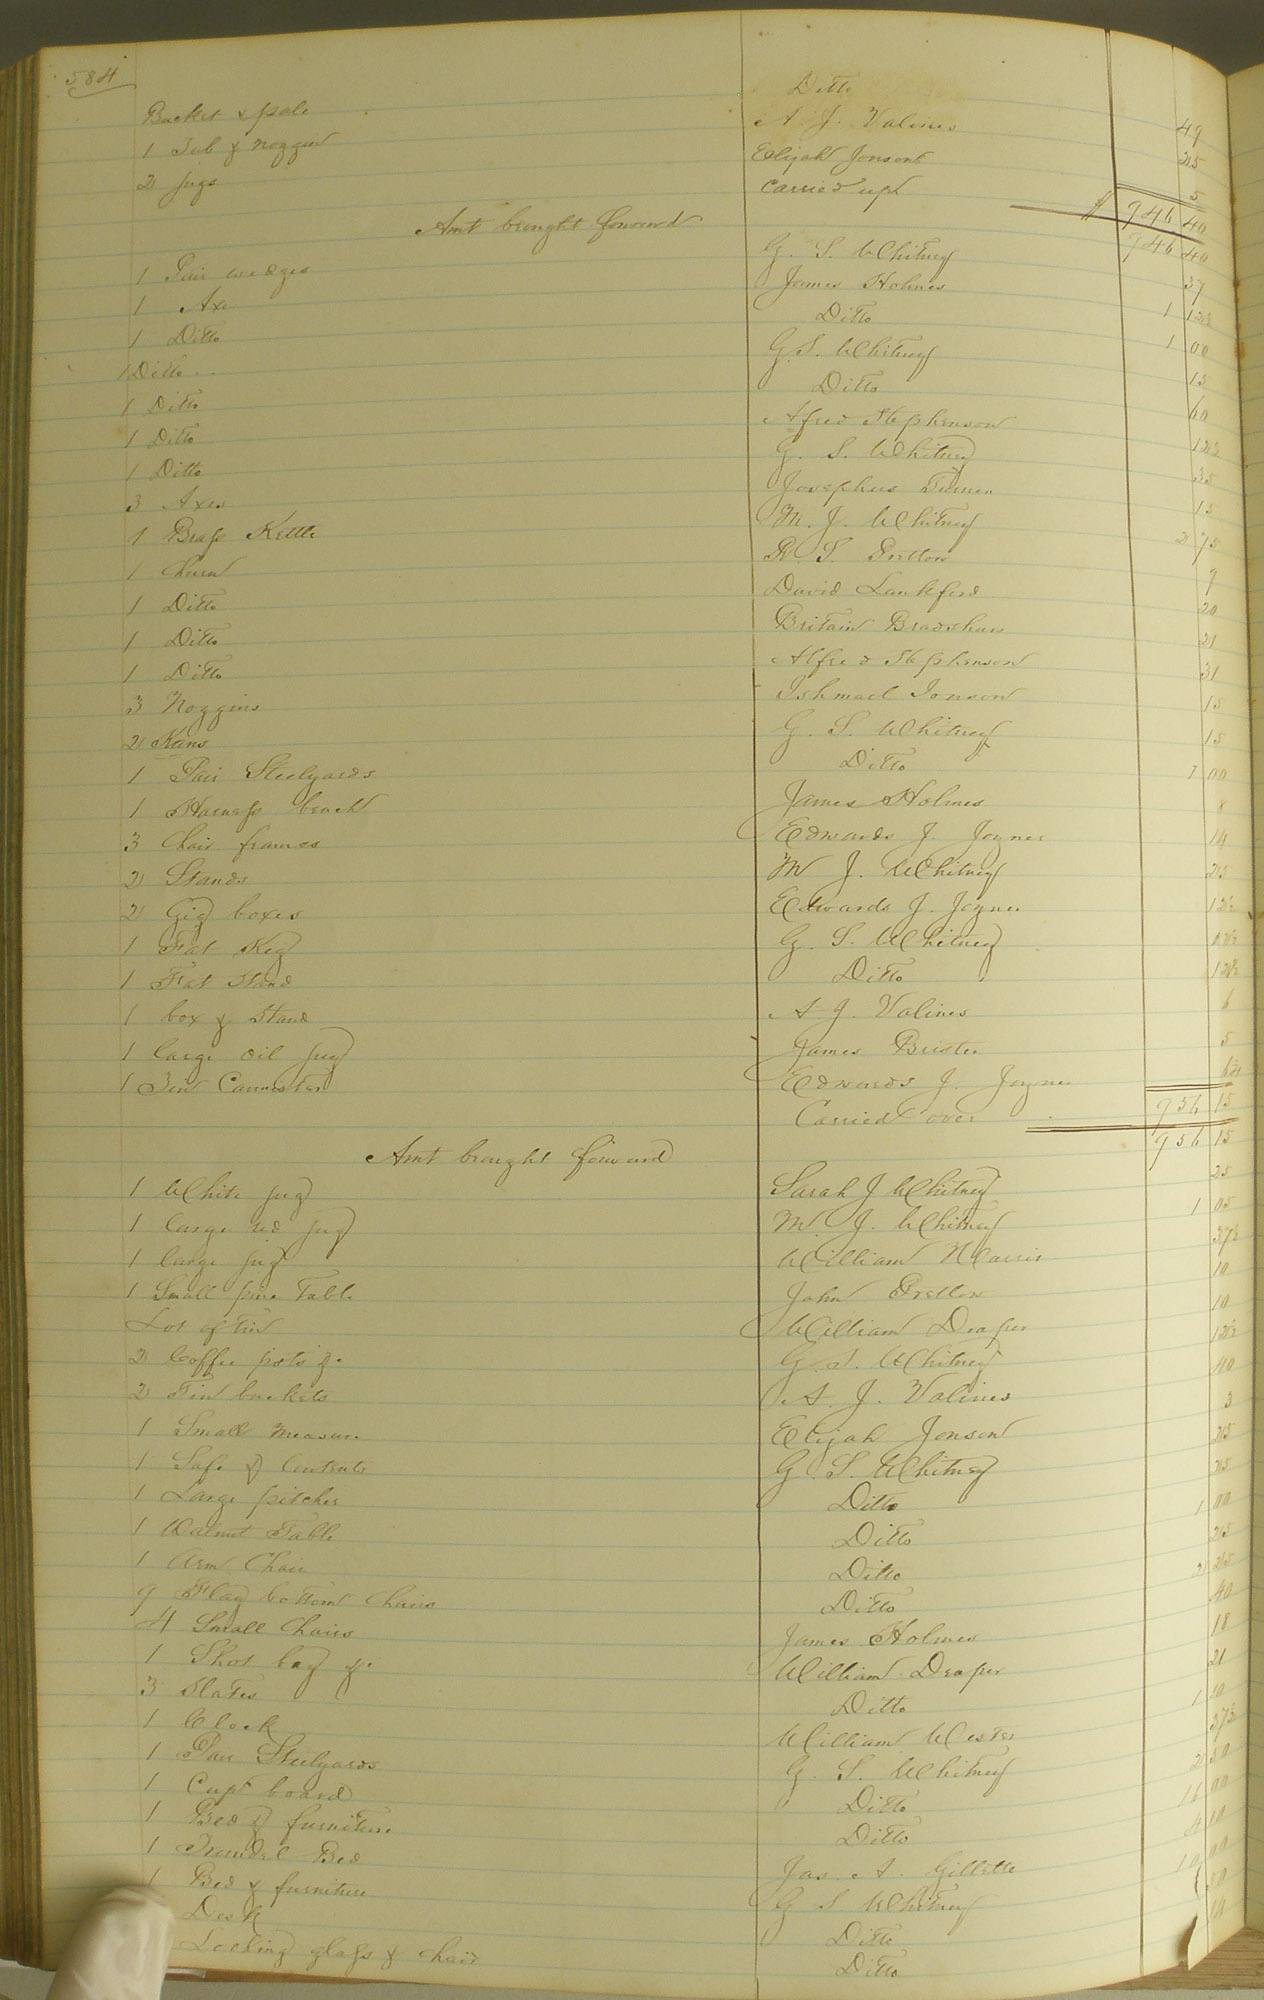 584
Bucket & pale Ditto 49
1 Tub & noggin A. J. Valines 25
2 Jugs Elijah Jonson 5
carried up $ 946 40
Amt brought forward 946 40
1 Pair wedges G. S. Whitney 37
1 Axe James Holmes 1 12½
1 Ditto Ditto 1 00
1 Ditto G. S. Whitney 15
1 Ditto Ditto 60
1 Ditto Alfred Stephenson 12½
1 Ditto G. S. Whitney 35
3 Axes Josephus Turner 15
1 Brass Kettle M. J. Whitney 2 75
1 Churn R. S. Pretlow 9
1 Ditto David Lankford 20
1 Ditto Britain Bradshaw 21
1 Ditto Alfred Stephenson 31
3 Noggins Ishmael Jonson 15
2 Kans G. S. Whitney 15
1 Pair Steelyards Ditto 1 00
1 Harness bench James Holmes 8
3 Chair frames Edwards J. Joyner 14
2 Stands M J. Whitney 25
2 Gig boxes Edwards J. Joyner 12½
1 Fat Keg G. S. Whitney 12½
1 Fat Stand Ditto 12½
1 box & Stand A J. Valines 6
1 large oil Jug James Brister 5
1 Tin Cannister Edwards J. Joyner 6¼
Carried over 956 15
Amt brought forward 956 15
1 White Jug Sarah J Whitney 25
1 large red Jug M. J. Whitney 1 05
1 large Jug William Harris 37½
1 Small pine Table John Pretlow 10
Lot of tin William Draper 10
2 Coffee pots &c G. S. Whitney 12½
2 Tin buckets A. J. Valines 40
1 Small measure Elijah Jonson 3
1 Safe & Contents G. S. Whitney 25
1 Large pitcher Ditto 25
1 Walnut Table Ditto 1 00
1 Arm Chair Ditto 25
9 Flag bottom Chairs Ditto 2 25
4 Small Chairs James Holmes 40
1 Shot bag &c William Draper 18
3 Slates Ditto 21
1 Clock William Wester 1 50
1 Pair Steelyards G. S. Whitney 37½
1 Cup board Ditto 2 50
1 Bed & furniture Ditto 16 00
1 Trundel Bed Jas. A. Gillette 4 10
1 Bed & furniture G S Whitney 10 00
Desk Ditto 50
Looking glass & chair Ditto 10